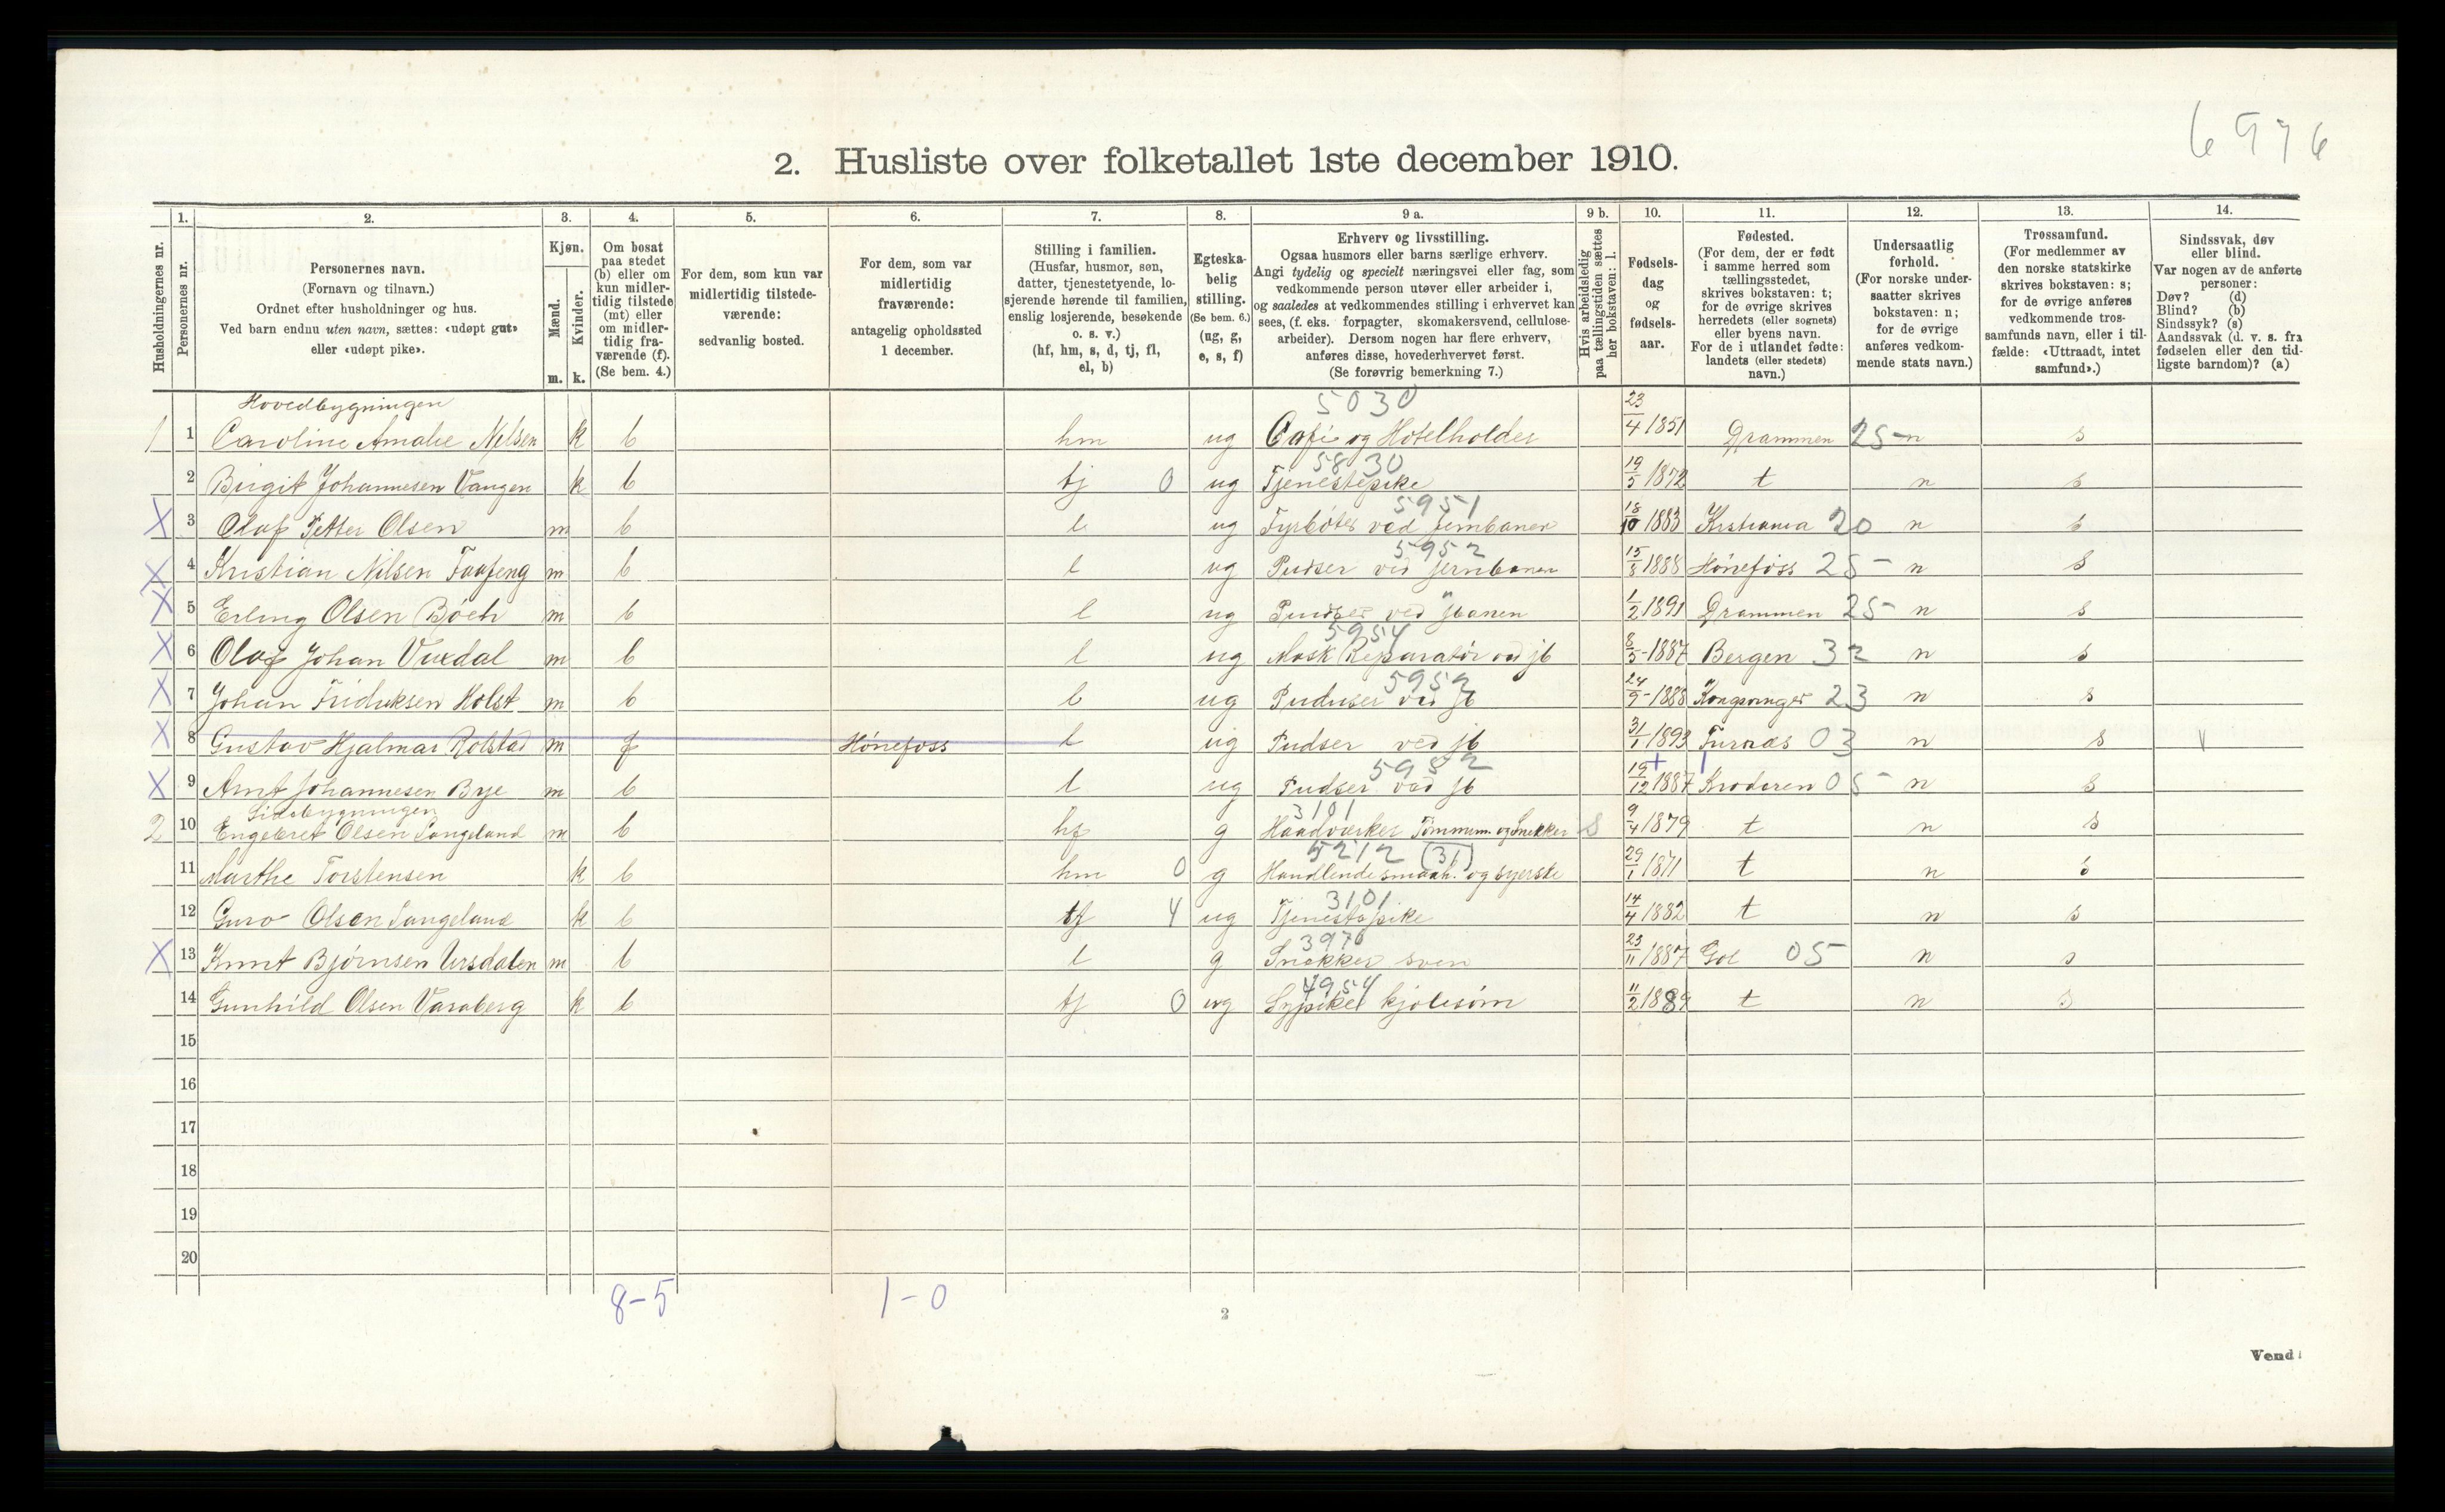 6976
2. Husliste over folketallet 1ste december 1910.
1. 2. 3. 4. 5. 6. 7. 8. 9 a. 9 b. 10. 11. 12. 13. 14.
Husholdningernes nr.
Personernes nr.
Personernes navn.
(Fornavn og tilnavn.)
Ordnet efter husholdninger og hus.
Ved barn endnu uten navn, sættes: «udøpt gut»
eller «udøpt pike».
Kjøn.
Mænd.
Kvinder.
m. k.
Om bosat
paa stedet
(b) eller om
kun midler-
tidig tilstede
(mt) eller
om midler-
tidig fra-
værende (f).
(Se bem. 4.)
For dem, som kun var
midlertidig tilstede-
værende:
sedvanlig bosted.
For dem, som var
midlertidig
fraværende:
antagelig opholdssted
1 december.
Stilling i familien.
(Husfar, husmor, søn,
datter, tjenestetyende, lo-
sjerende hørende til familien,
enslig losjerende, besøkende
o. s. v.)
(hf, hm, s, d, tj, fl,
el, b)
Egteska-
belig
stilling.
(Se bem. 6.)
(ug, g,
e, s, f)
Erhverv og livsstilling.
Ogsaa husmors eller barns særlige erhverv.
Angi tydelig og specielt næringsvei eller fag, som
vedkommende person utøver eller arbeider i,
og saaledes at vedkommendes stilling i erhvervet kan
sees, (f. eks. forpagter, skomakersvend, cellulose-
arbeider). Dersom nogen har flere erhverv,
anføres disse, hovederhvervet først.
(Se forøvrig bemerkning 7.)
Hvis arbeidsledig
paa tællingstiden sættes
her bokstaven: l.
Fødsels-
dag
og
fødsels-
aar.
Fødested.
(For dem, der er født
i samme herred som
tællingsstedet,
skrives bokstaven: t;
for de øvrige skrives
herredets (eller sognets)
eller byens navn.
For de i utlandet fødte:
landets (eller stedets)
navn.)
Undersaatlig
forhold.
(For norske under-
saatter skrives
bokstaven: n;
for de øvrige
anføres vedkom-
mende stats navn.)
Trossamfund.
(For medlemmer av
den norske statskirke
skrives bokstaven: s;
for de øvrige anføres
vedkommende tros-
samfunds navn, eller i til-
fælde: «Uttraadt, intet
samfund».)
Sindssvak, døv
eller blind.
Var nogen av de anførte
personer:
Døv? (d)
Blind? (b)
Sindssyk? (s)
Aandssvak (d. v. s. fra
fødselen eller den tid-
ligste barndom)? (a)
Hovedbygningen 5030
1 1 Caroline Amalie Nilsen k b hm ug Café og Hotelholder 23/4 1851 Drammen 25 n s
5830
2 Birgit Johannesen Vangen k b tj 0 ug Tjenestepike 19/5 1872 t n s
5951
X 3 Olaf Petter Olsen m b l ug Fyrbøter ved jernbanen 18/10 1883 Kristiania 20 n s
5952
X 4 Kristian Nilsen Faafeng m b l ug Pudser ved jernbanen 15/8 1888 Hønefoss 25 n s
X 5 Erling Olsen Bøch m b l ug Pudser ved jbanen 1/2 1891 Drammen 25 n s
5954
X 6 Olaf Johan Vuxdal m b l ug Mask Reparatør ved jb 8/5 1887 Bergen 32 n s
5952
X 7 Johan Fridriksen Holst m b l ug Pudser ved jb 24/9 1888 Kongsvinger 23 n s
X 8 Gustav Hjalmar Rolstad m f Hønefoss l ug Pudser ved jb 31/1 1893 Furnæs 03 n s
5952
X 9 Arnt Johannesen Bye m b l ug Pudser ved jb 19/12 1887 Krøderen 05 n s
Sidebygningen 3101
2 10 Engebret Olsen Sangeland m b hf g Haandværker Tømmerm. og Snekker s 9/4 1879 t n s
5212 (31)
11 Marthe Torstensen k b hm 0 g Handlende smaah. og syerske 29/1 1871 t n s
3101
12 Guro Olsen Sangeland k b tj 4 ug Tjenestepike 14/4 1882 t n s
3976
X 13 Knut Bjørnsen Ursdalen m b l g Snekker sven 23/11 1887 Gol 05 n s
4954
14 Gunhild Olsen Varaberg k b tj 0 ug Sypike kjolesøm 11/2 1889 t n s
15
16
17
18
19
20
8-5 1-0
Vend!